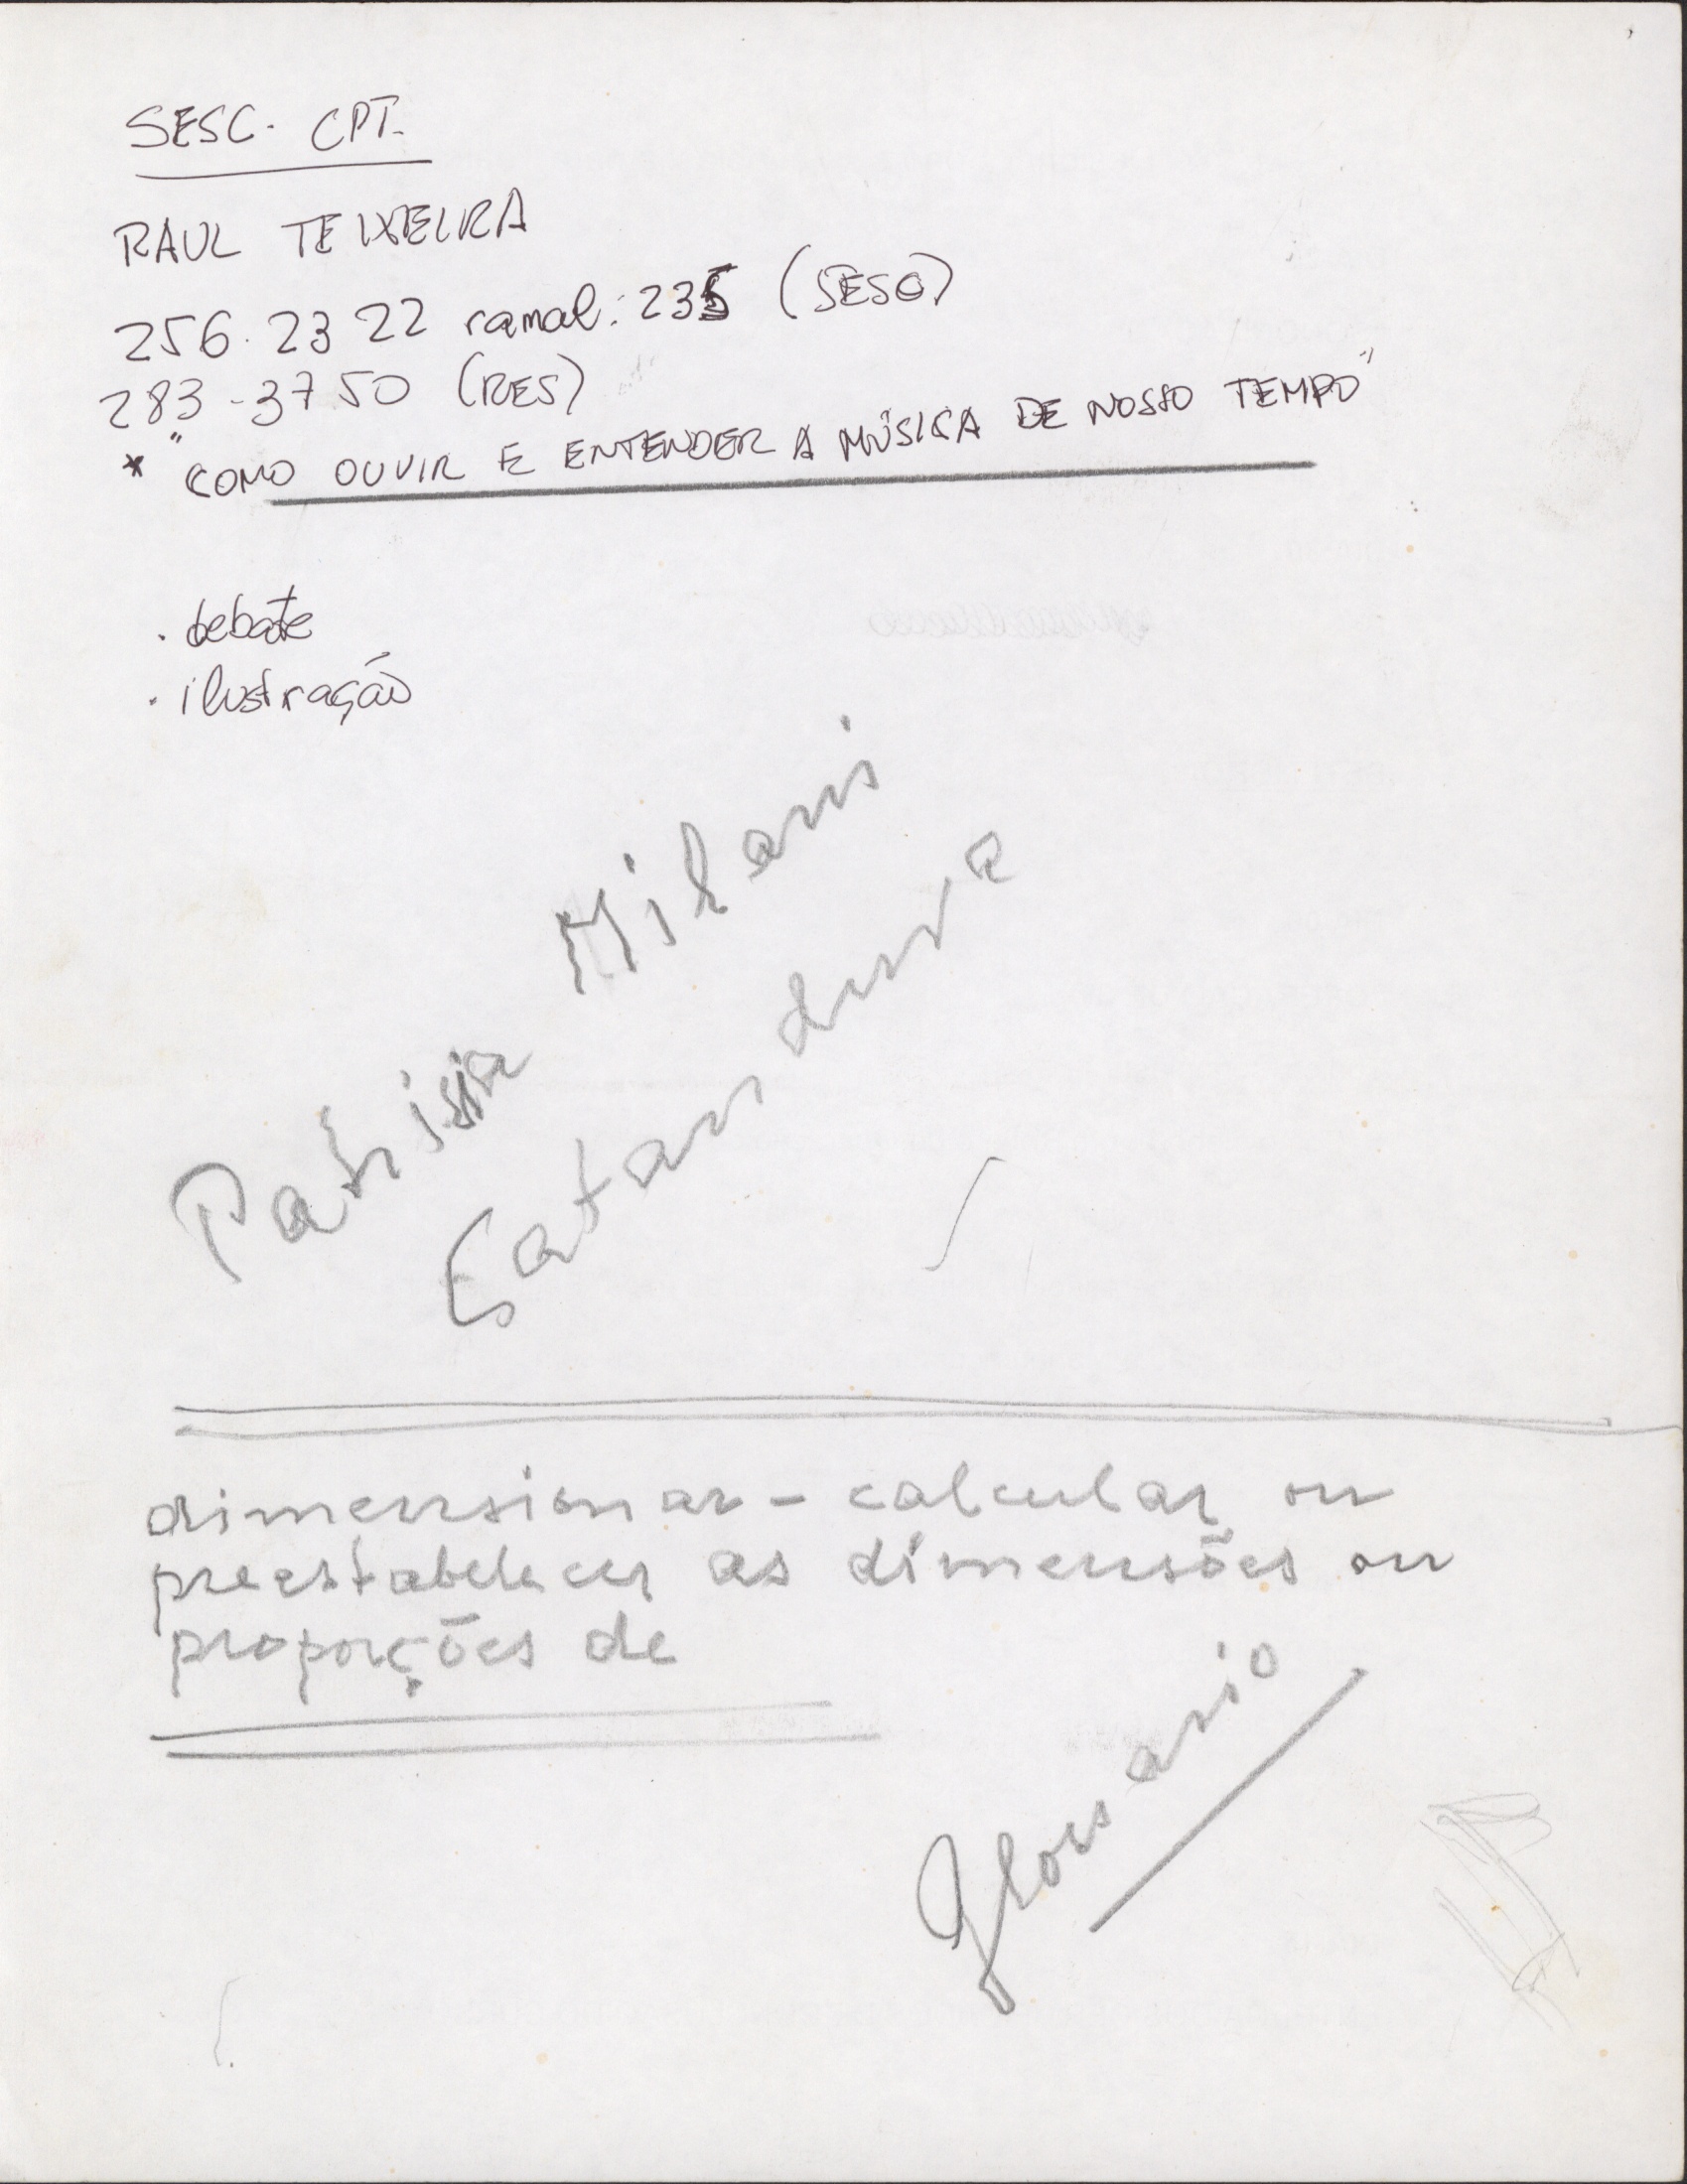 SESC. CPT.
RAUL TEIXEIRA
256.23 22 ramal: 235 (SESC)
283-3750 (RES)
* "COMO OUVIR E ENTENDER A MÚSICA DE NOSSO TEMPO"
. debate
. ilustração
Patrisia Milani
Catanduva
dimensionar - calcular ou
preestabelecer as dimensões ou
proporções de
Glossario